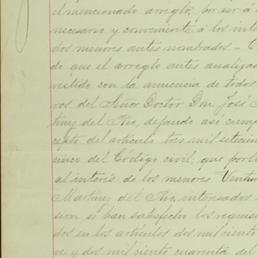 el mencionado arreglo, por ser á
necesario y conveniente á los inte
dos menores antes nombrados - C
de que el arreglo antes analizad
vestido con la anuencia de todos
ros del Señor Doctor Don José
tinez del Rio, dejando asi cump
cepto del artículo tres mil setecien
cinco del Código civil, que por lo
al interés de los menores Ventur
Martinez del Rio, interesados
sion se han satisfecho los requisi
dos en los artículos dos mil ciento
ve y dos mil ciento cuarenta del